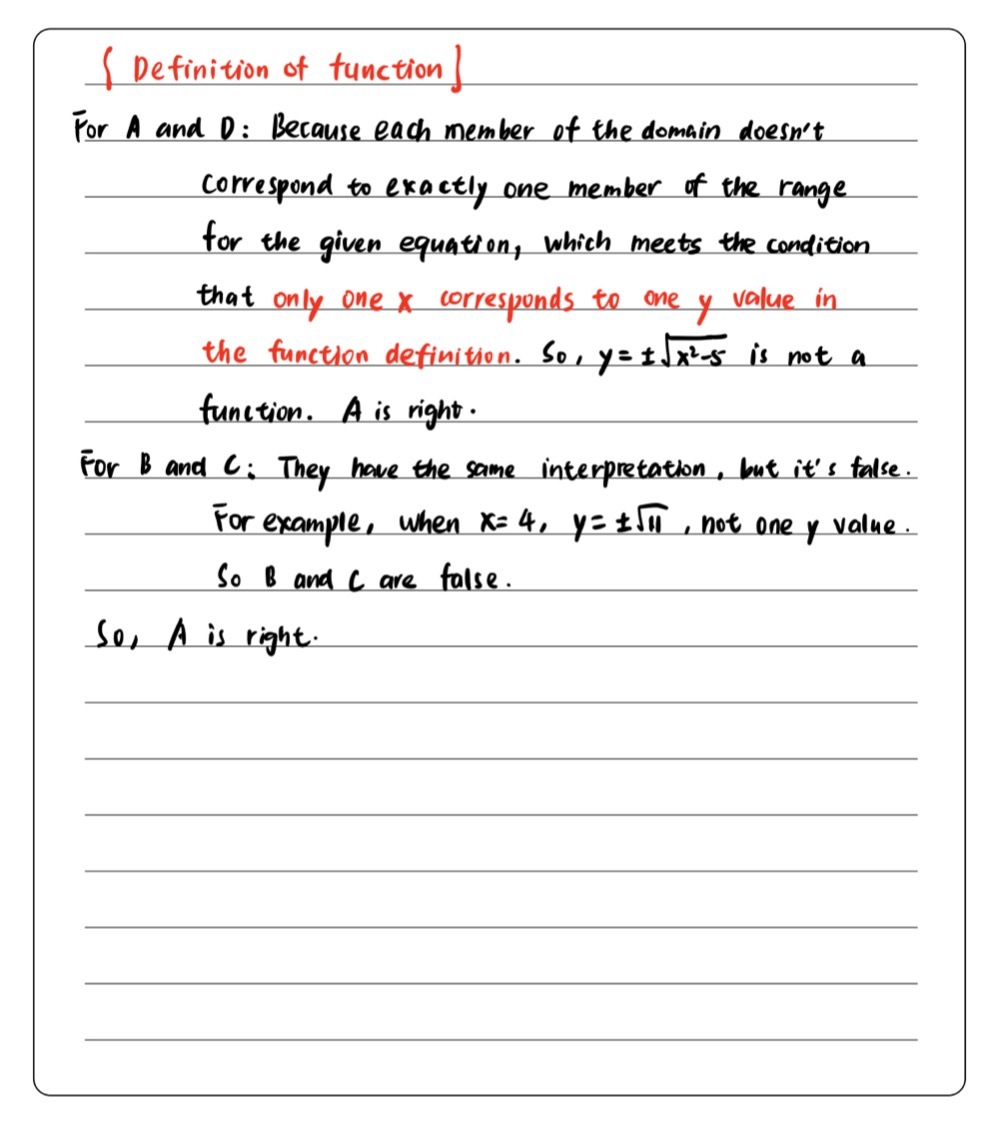 [Definition of function]
For A and D: Because each member of the domain doesn't
correspond to exactly one member of the range
for the given equation, which meets the condition
that only one x corresponds to one y value in
the function definition. So, y=±√x²-5 is not a
function. A is right.
For B and C: They have the same interpretation, but it's false.
For example, when x=4, y=±√11, not one y value.
So B and C are false.
So, A is right.